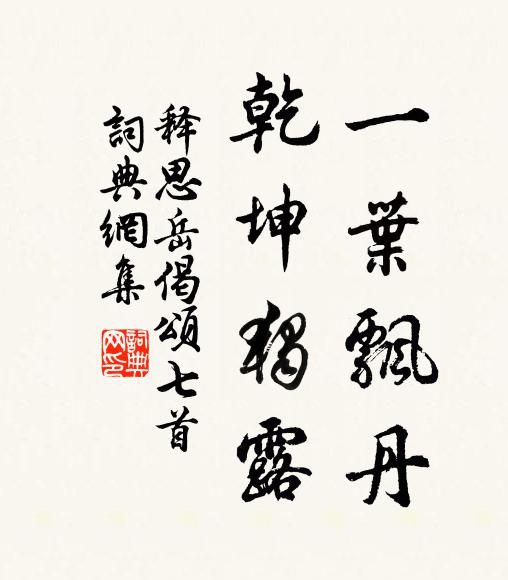 一葉飄丹
乾坤獨露
释思岳偈頌七首
詞典網集
詞典网印